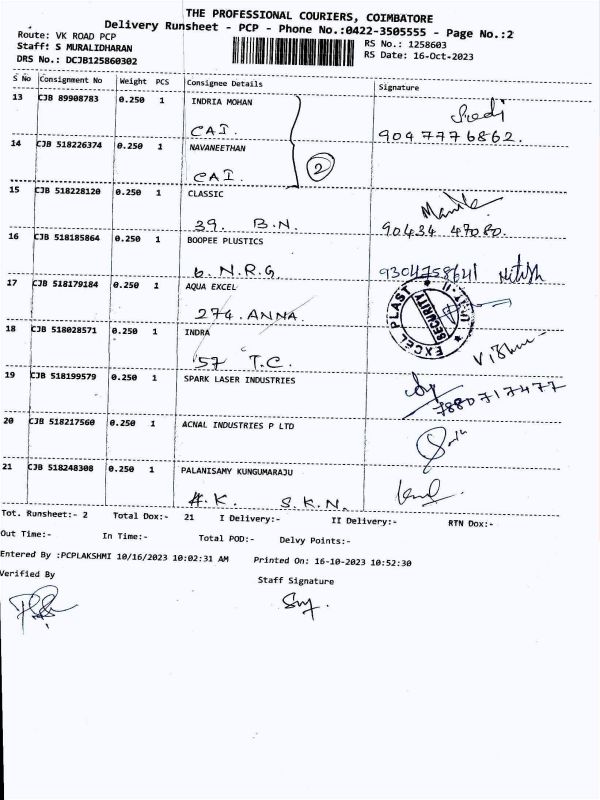 THE PROFESSIONAL COURIERS, COIMBATORE
Delivery Runsheet - PCP - Phone No.:0422-3505555 - Page No.:2
Route: VK ROAD PCP
RS No.: 1258603
Staff: S MURALIDHARAN
RS Date: 16-Oct-2023
DRS No.: DCJB125860302
S No Consignment No Weight PCS Consignee Details Signature
13 CJB 89908783 0.250 1 INDRIA MOHAN
CAI. 904 7776862.
14 CJB 518226374 0.250 1 NAVANEETHAN
2
CAI.
15 CJB 518228120 0.250 1 CLASSIC
39. B.N. 90434 47080.
16 CJB 518185864 0.250 1 BOOPEE PLUSTICS
6. N.R.G. 9304758641 Nitish
17 CJB 518179184 0.250 1 AQUA EXCEL
274. ANNA EXCEL PLAST SECURITY
18 CJB 518028571 0.250 1 INDRA
57 T.C.
19 CJB 518199579 0.250 1 SPARK LASER INDUSTRIES
7880717477
20 CJB 518217560 0.250 1 ACNAL INDUSTRIES P LTD
21 CJB 518248308 0.250 1 PALANISAMY KUNGUMARAJU
A.K. S.K.N.
Tot. Runsheet:- 2 Total Dox:- 21 I Delivery:- II Delivery:- RTN Dox:-
Out Time:- In Time:- Total POD:- Delvy Points:-
Entered By :PCPLAKSHMI 10/16/2023 10:02:31 AM Printed On: 16-10-2023 10:52:30
Verified By Staff Signature